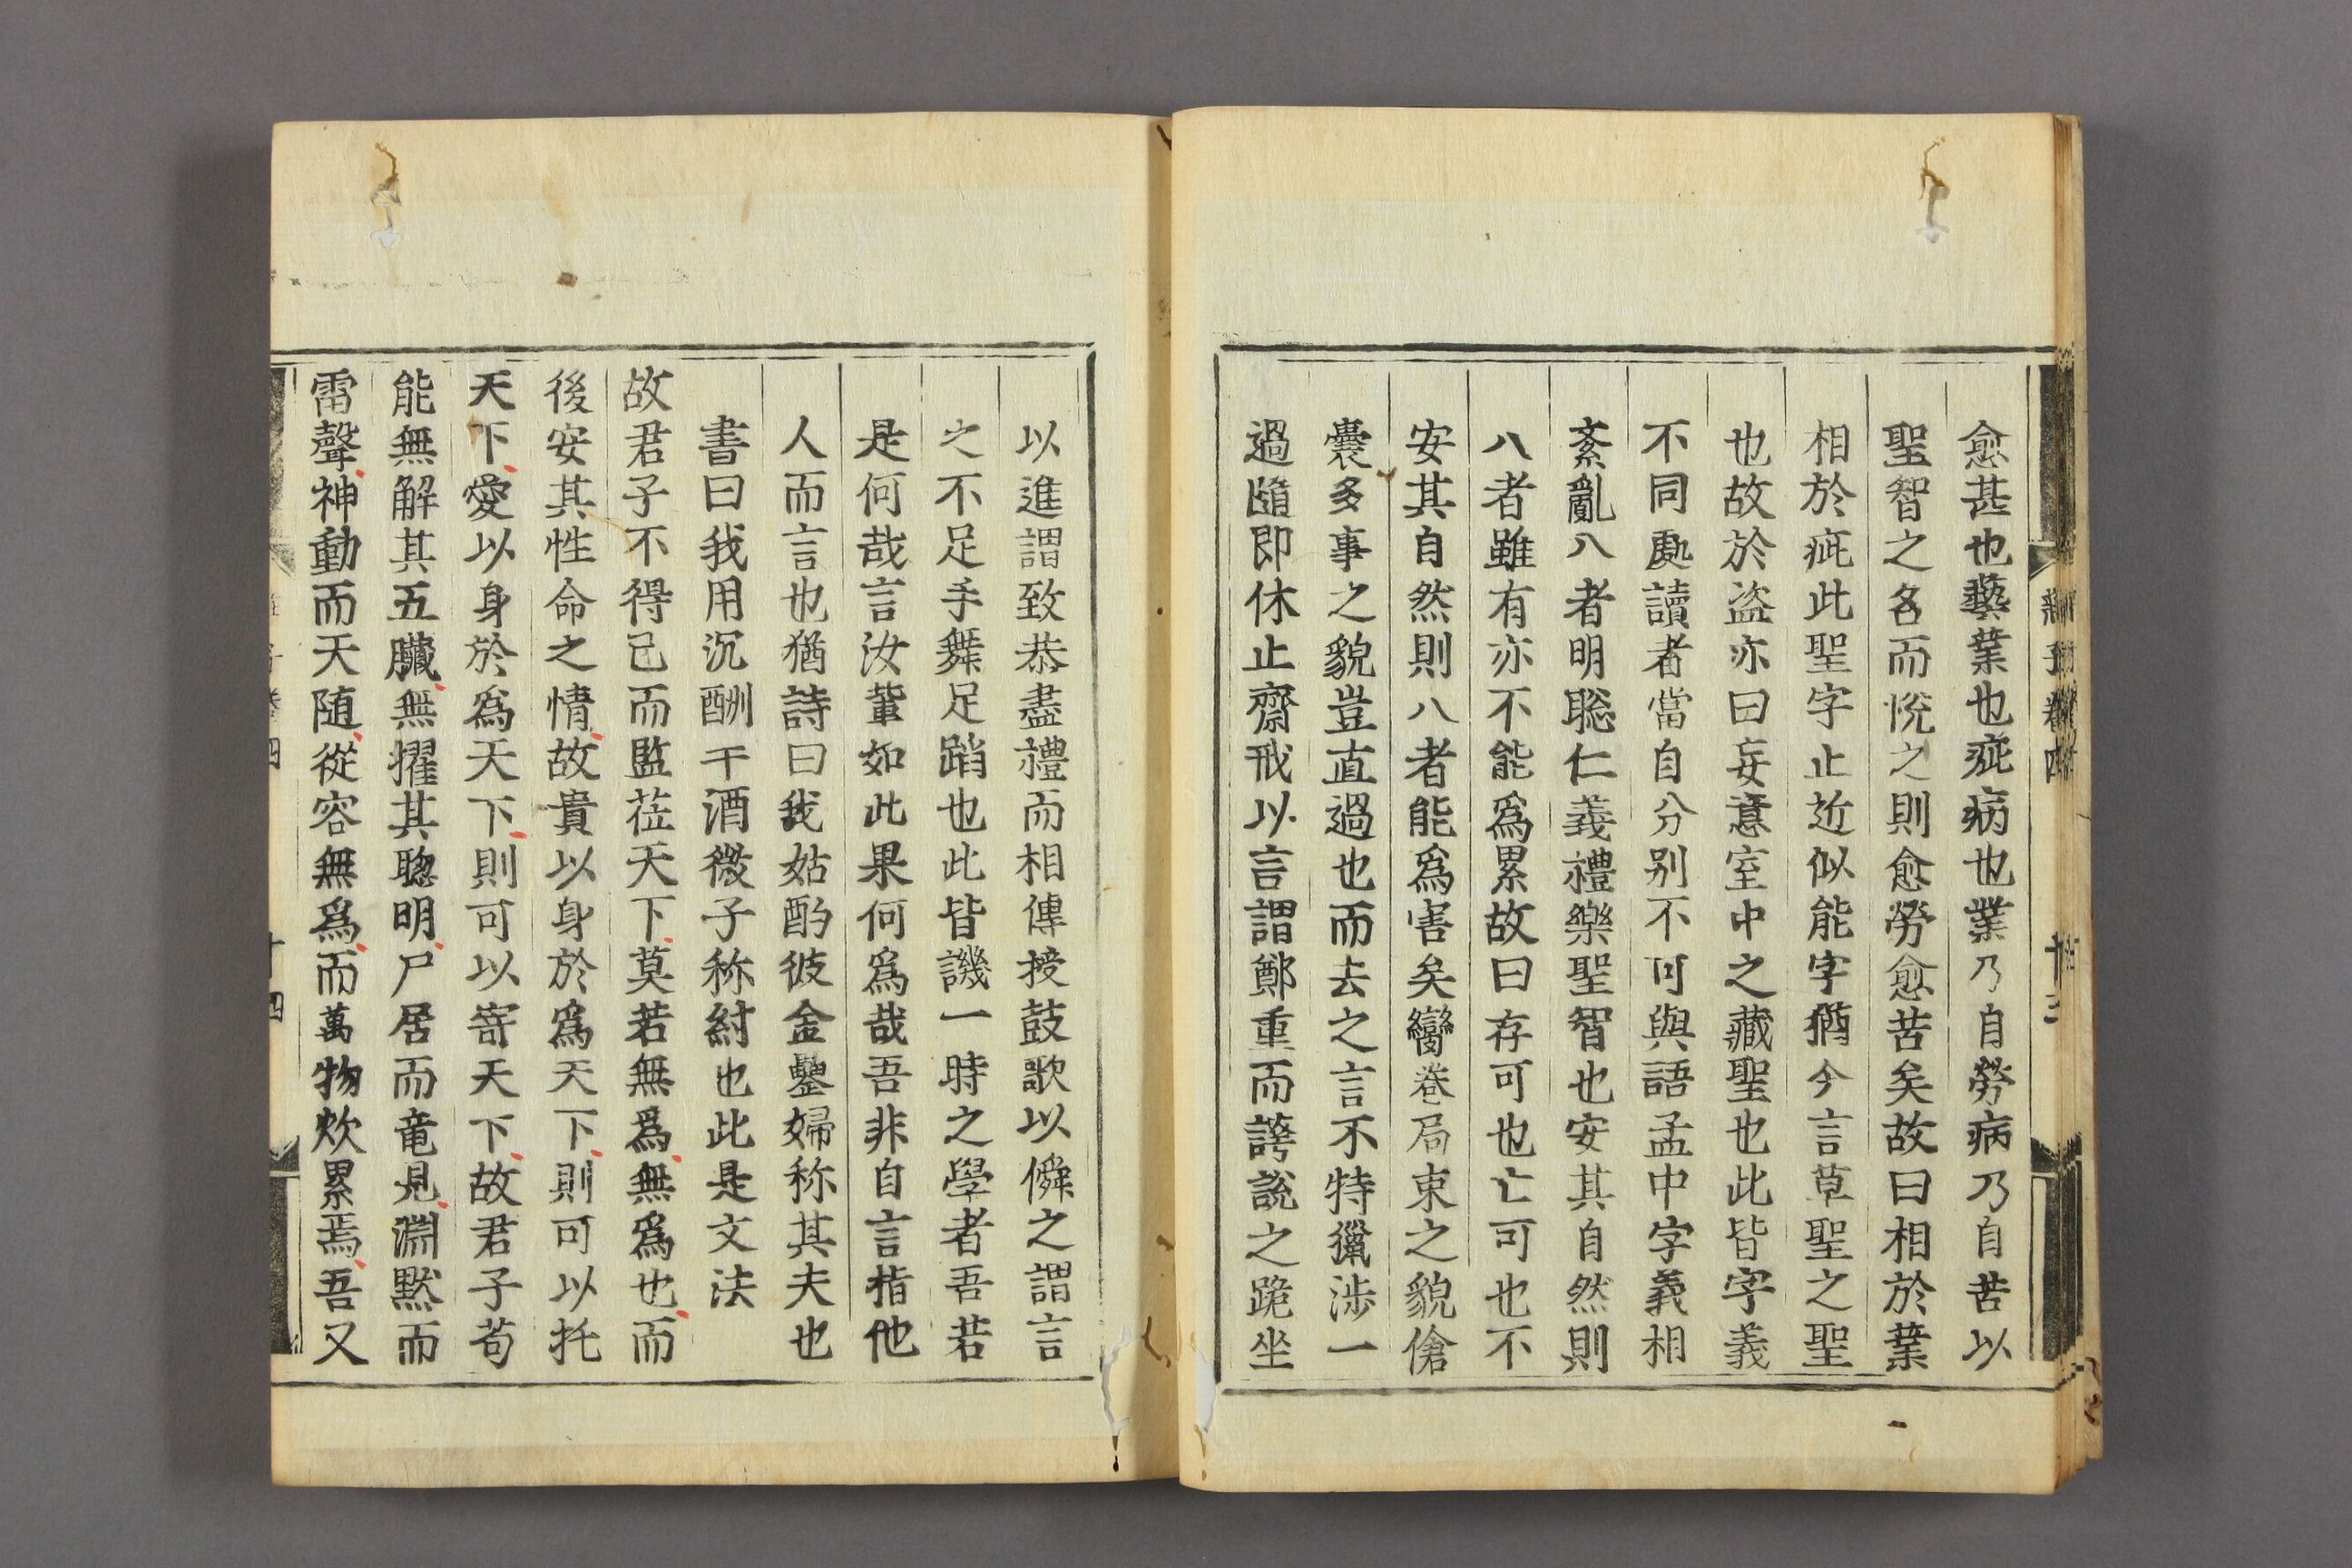 愈甚也藝業也疵病也業乃自勞病乃自苦以
聖智之名而悅之則愈勞愈苦矣故曰相於業
相於疵此聖字止近似能字猶今言草聖之聖
也故於盜亦曰妄意室中之藏聖也此皆字義
不同處讀者當自分别不可與語孟中字義相
紊亂八者明聡仁義禮樂聖智也安其自然則
八者雖有亦不能爲累故曰存可也亡可也不
安其自然則八者能爲害矣臠卷局束之貌傖
囊多事之貌豈直過也而去之言不特獵涉一
過隨即休止齋戒以言謂鄭重而誇說之跪坐
以進謂致恭盡禮而相傳授鼓歌以儛之謂言
之不足手舞足蹈也此皆譏一時之學者吾若
是何哉言汝軰如此果何爲哉吾非自言指他
人而言也猶詩曰我姑酌彼金罍婦称其夫也
書曰我用沉酗于酒微子称紂也此是文法
故君子不得已而監莅天下莫若無爲無爲也而
後安其性命之情故貴以身於爲天下則可以托
天下愛以身於爲天下則可以寄天下故君子苟
能無解其五臟無擢其聦明尸居而竜見淵默而
雷聲神動而天随從容無爲而萬物炊累焉吾又